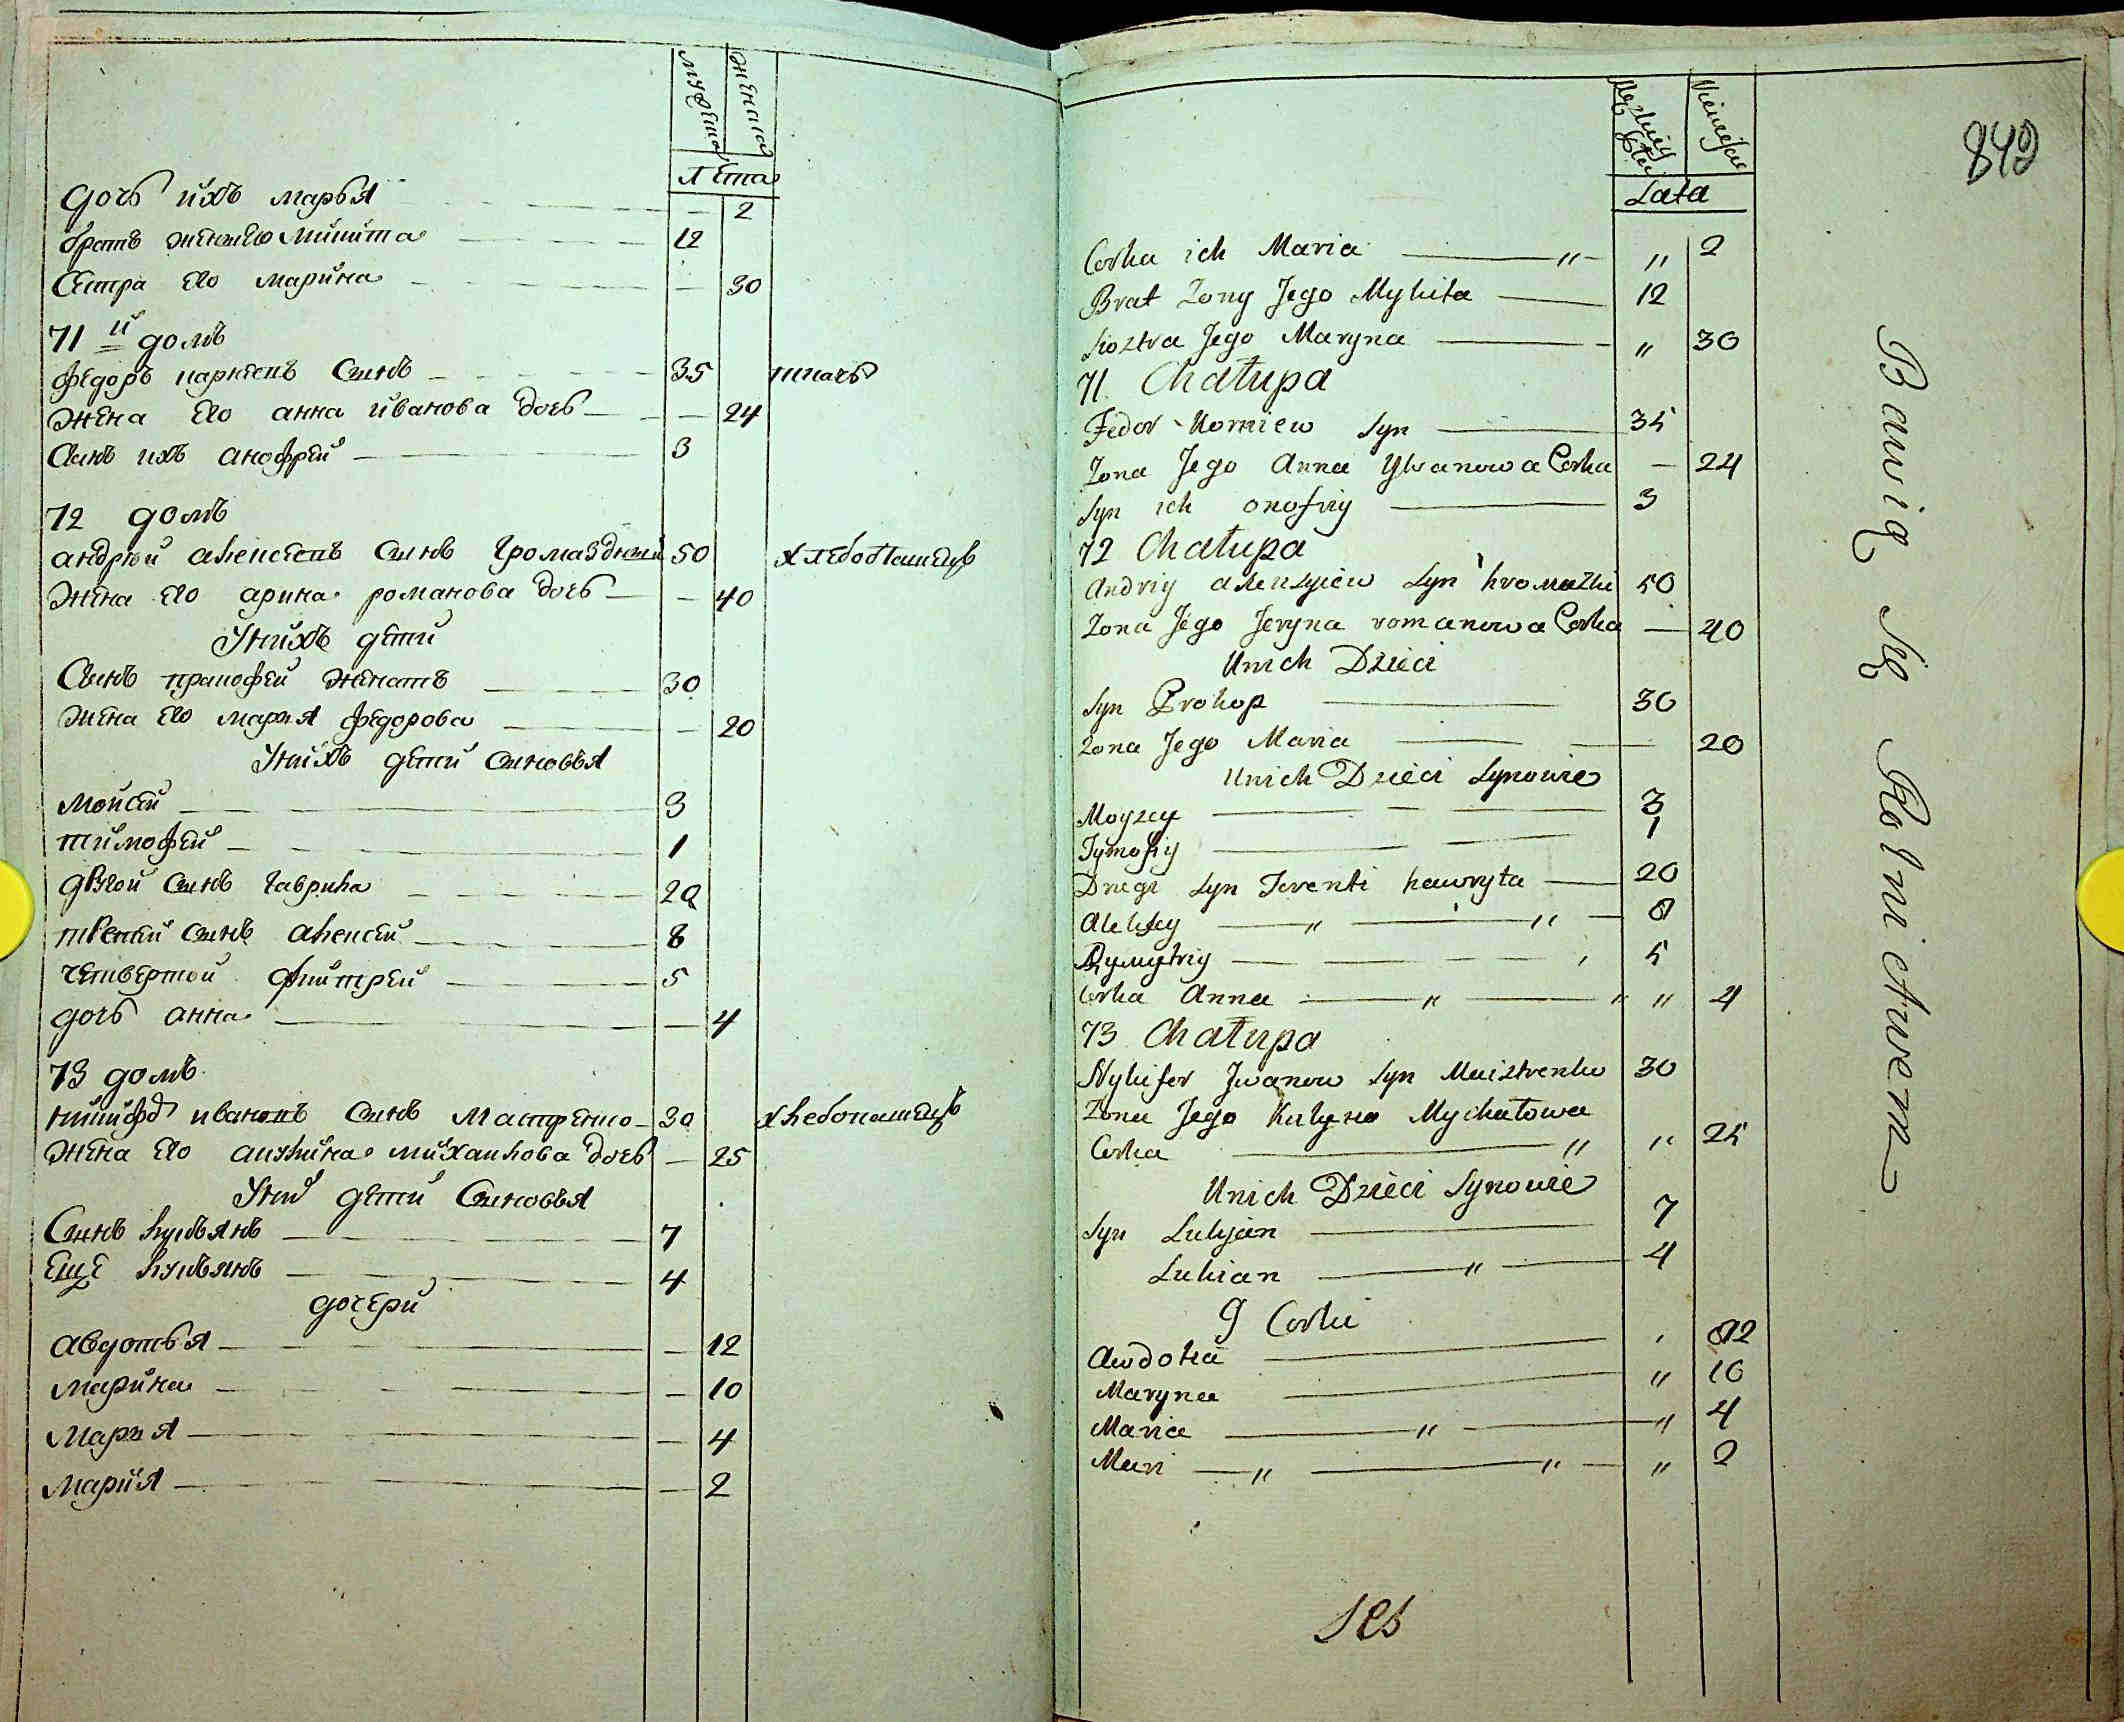 мужеска
женска
Лета
дочь ихъ марья 2
братъ жены его микита 12
сестра его марина 30
71й домъ
федоръ карнеевъ сынъ 35 ткачь
жена его анна иванова дочь 24
сынъ ихъ анофрей 3
72 домъ
андрей алексеевъ сынъ громаздкий 50 хлебопашецъ
жена его арина романова дочь 40
у нихъ дети
сынъ пракофей женатъ 30
жена его марья федорова 20
у нихъ дети сыновья
мойсей 3
тимофей 1
другой сынъ гаврила 20
третий сынъ алексей 8
четвертой дмитрей 5
дочь анна 4
73 домъ
никифоръ ивановъ сынъ маистренко 30 хлебопашецъ
жена его акулина михайлова дочь 25
у них дети сыновья
сынъ лукьянъ 7
еще лукьянъ 4
дочери
авдотья 12
марина 10
марья 4
мария 2
849
Lata
Corka ich Maria " " 2
Brat Zony Jego Mykita 12
Siostra Jego Maryna " 30
71 Chałupa
Fedor Korniew Syn 35
Zona Jego Anna Ywanowa Corka 24
Syn ich onofriy 3
72 Chałupa
Andriy alexsyiew Syn hromazki 50
Zona Jego Jeryna romanowa Corka 40
Unich Dzieci
Syn Prokop 30
Zona Jego Maria 20
Unich Dzieci Synowie
Moyzey 3
Tymofiy 1
Drugi Syn Terenti hawryła 20
Alexsey " " 8
Dymytriy 5
Corka Anna " " " 4
73 Chałupa
Nykifor Jwanow Syn Maistrenko 30
Zona Jego Kulyna Mychałowa
Corka " " 25
Unich Dzieci Synowie
Syn Lukjan 7
Lukian " 4
9 Corki
Awdotia 12
Maryna " 10
Maria " " 4
Mari " " " 2
Bawią Się Rolnictwem